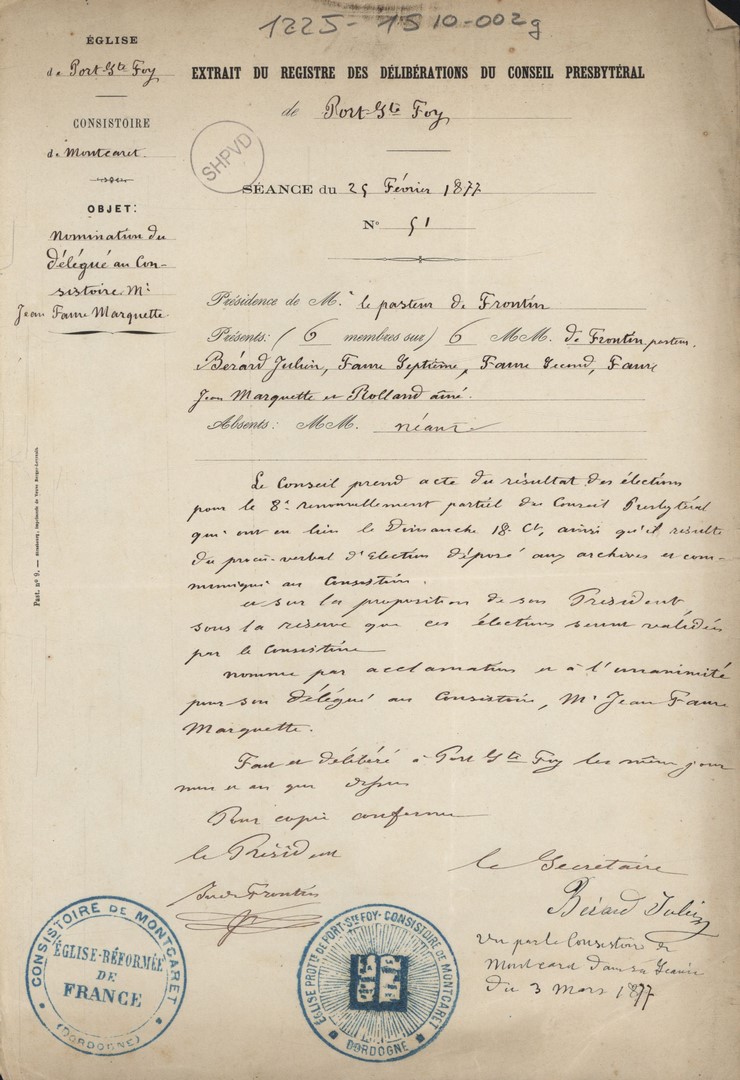 1225-1510-002g
ÉGLISE
de Port-Ste Foy
CONSISTOIRE
de Montcaret.
OBJET:
Nomination du
délégué au Con-
sistoire Mr
Jean Faure Marquette
EXTRAIT DU REGISTRE DES DÉLIBÉRATIONS DU CONSEIL PRESBYTÉRAL
de Port-Ste Foy
SHPVD
SÉANCE du 25 Février 1877
N° 51
Présidence de M. le pasteur de Frontin
Présents: (6 membres sur) 6 MM. de Frontin pasteur,
Bérard Julien, Faure Septième, Faure Second, Faure
Jean Marquette et Rolland aîné.
Absents: MM. néant
Le Conseil prend acte du résultat des élections
pour le 8e renouvellement partiel du Conseil Presbytéral
qui ont eu lieu le Dimanche 18 Ct, ainsi qu'il résulte
du procès-verbal d'Election déposé aux archives et com-
muniqué au Consistoire.
et sur la proposition de son Président
sous la réserve que ces élections seront validées
par le Consistoire
nomme par acclamation et à l'unanimité
pour son délégué au Consistoire, Mr Jean Faure
Marquette.
Fait et délibéré à Port Ste Foy les même jour
mois et an que dessus
Pour copie conforme
le Président
le Secrétaire
de Frontin
Bérard Julien
Vu par le Consistoire de
Montcaret dans sa Séance
du 3 Mars 1877
CONSISTOIRE DE MONTCARET
ÉGLISE-RÉFORMÉE
DE
FRANCE
(DORDOGNE)
ÉGLISE PROTte DE PORT-STE FOY-CONSISTOIRE DE MONTCARET
DORDOGNE
Past. n° 9. — Strasbourg, imprimerie de Veuve Berger-Levrault.